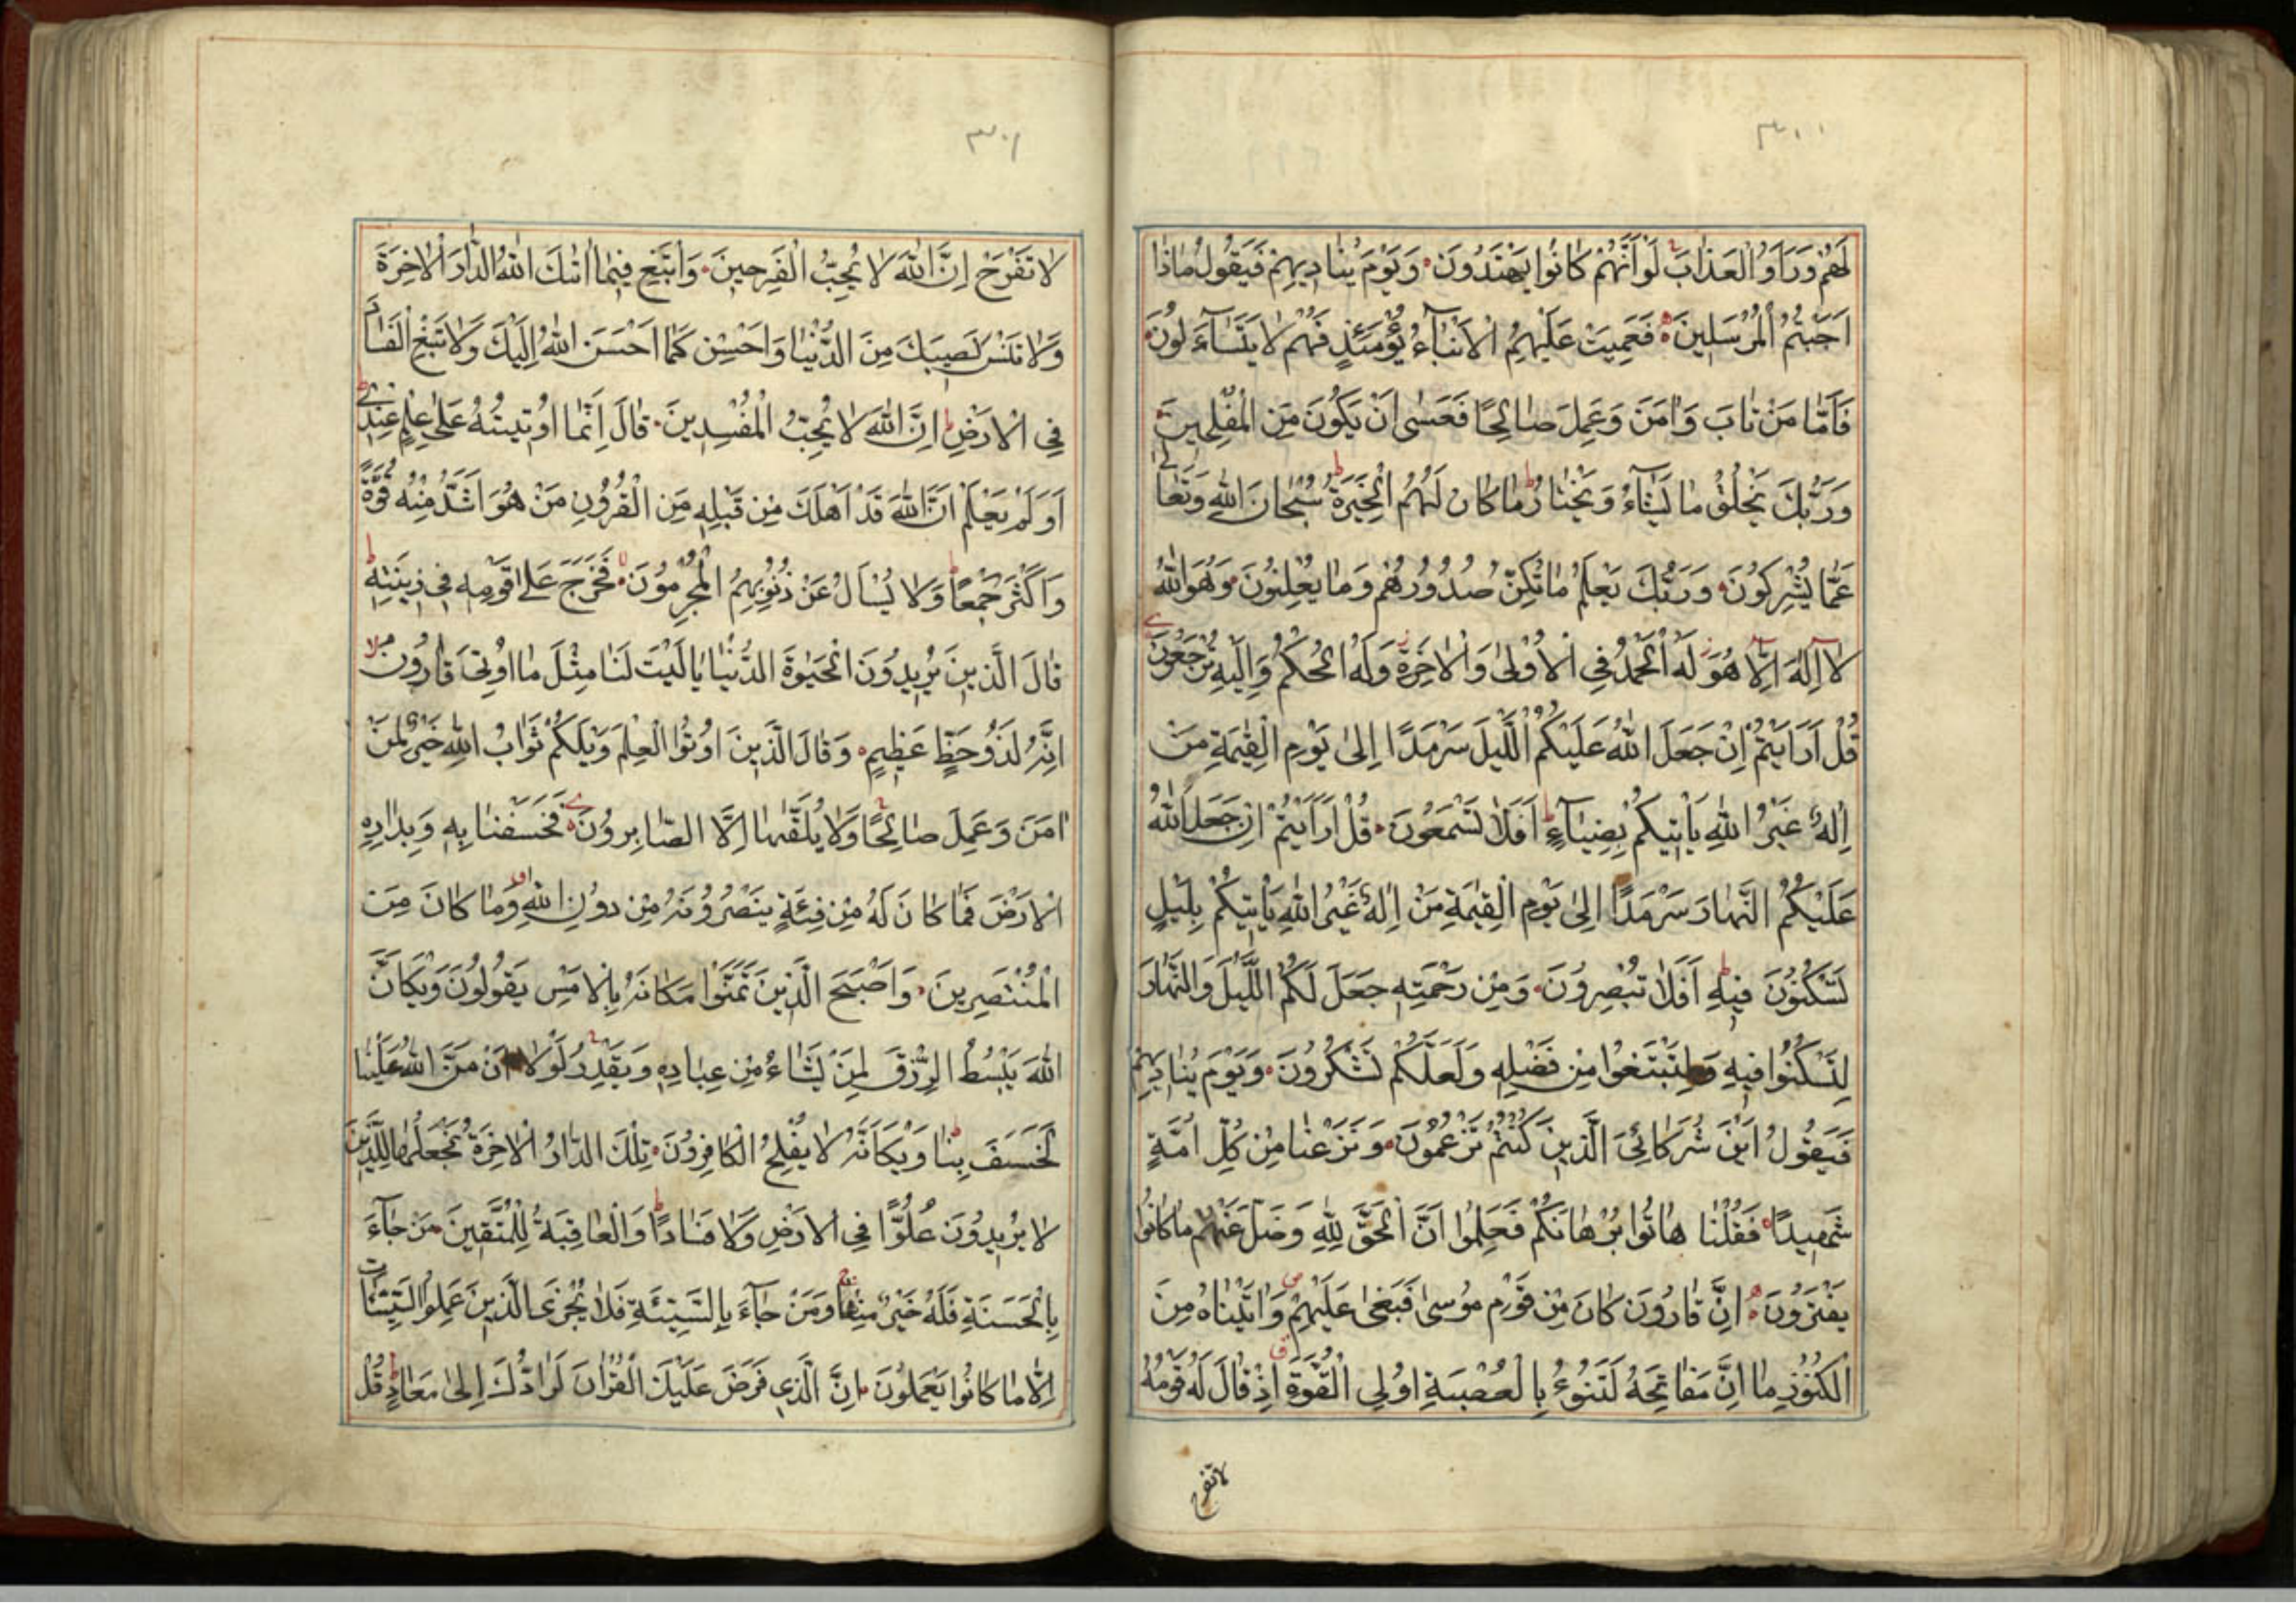 ٣٠٠
لَهُمْ وَرَاَوُ الْعَذَابَ لَوْ اَنَّهُمْ كَانُوا يَهْتَدُونَ وَيَوْمَ يُنَادِيهِمْ فَيَقُولُ مَاذَا
اَجَبْتُمُ الْمُرْسَلِينَ فَعَمِيَتْ عَلَيْهِمُ الْاَنْبَآءُ يَوْمَئِذٍ فَهُمْ لَا يَتَسَآءَلُونَ
فَاَمَّا مَنْ تَابَ وَاٰمَنَ وَعَمِلَ صَالِحًا فَعَسٰى اَنْ يَكُونَ مِنَ الْمُفْلِحِينَ
وَرَبُّكَ يَخْلُقُ مَا يَشَآءُ وَيَخْتَارُ مَا كَانَ لَهُمُ الْخِيَرَةُ سُبْحَانَ اللّٰهِ وَتَعَالٰى
عَمَّا يُشْرِكُونَ وَرَبُّكَ يَعْلَمُ مَا تُكِنُّ صُدُورُهُمْ وَمَا يُعْلِنُونَ وَهُوَ اللّٰهُ
لَآ اِلٰهَ اِلَّا هُوَ لَهُ الْحَمْدُ فِي الْاُولٰى وَالْاٰخِرَةِ وَلَهُ الْحُكْمُ وَاِلَيْهِ تُرْجَعُونَ
قُلْ اَرَاَيْتُمْ اِنْ جَعَلَ اللّٰهُ عَلَيْكُمُ اللَّيْلَ سَرْمَدًا اِلٰى يَوْمِ الْقِيٰمَةِ مَنْ
اِلٰهٌ غَيْرُ اللّٰهِ يَاْتِيكُمْ بِضِيَآءٍ اَفَلَا تَسْمَعُونَ قُلْ اَرَاَيْتُمْ اِنْ جَعَلَ اللّٰهُ
عَلَيْكُمُ النَّهَارَ سَرْمَدًا اِلٰى يَوْمِ الْقِيٰمَةِ مَنْ اِلٰهٌ غَيْرُ اللّٰهِ يَاْتِيكُمْ بِلَيْلٍ
تَسْكُنُونَ فِيهِ اَفَلَا تُبْصِرُونَ وَمِنْ رَحْمَتِهِ جَعَلَ لَكُمُ اللَّيْلَ وَالنَّهَارَ
لِتَسْكُنُوا فِيهِ وَلِتَبْتَغُوا مِنْ فَضْلِهِ وَلَعَلَّكُمْ تَشْكُرُونَ وَيَوْمَ يُنَادِيهِمْ
فَيَقُولُ اَيْنَ شُرَكَائِيَ الَّذِينَ كُنْتُمْ تَزْعُمُونَ وَنَزَعْنَا مِنْ كُلِّ اُمَّةٍ
شَهِيدًا فَقُلْنَا هَاتُوا بُرْهَانَكُمْ فَعَلِمُوا اَنَّ الْحَقَّ لِلّٰهِ وَضَلَّ عَنْهُمْ مَا كَانُوا
يَفْتَرُونَ اِنَّ قَارُونَ كَانَ مِنْ قَوْمِ مُوسٰى فَبَغٰى عَلَيْهِمْ وَاٰتَيْنَاهُ مِنَ
الْكُنُوزِ مَا اِنَّ مَفَاتِحَهُ لَتَنُوءُ بِالْعُصْبَةِ اُولِي الْقُوَّةِ اِذْ قَالَ لَهُ قَوْمُهُ
لا تفرح
٣٠١
لَا تَفْرَحْ اِنَّ اللّٰهَ لَا يُحِبُّ الْفَرِحِينَ وَابْتَغِ فِيمَا اٰتٰىكَ اللّٰهُ الدَّارَ الْاٰخِرَةَ
وَلَا تَنْسَ نَصِيبَكَ مِنَ الدُّنْيَا وَاَحْسِنْ كَمَا اَحْسَنَ اللّٰهُ اِلَيْكَ وَلَا تَبْغِ الْفَسَادَ
فِي الْاَرْضِ اِنَّ اللّٰهَ لَا يُحِبُّ الْمُفْسِدِينَ قَالَ اِنَّمَا اُوتِيتُهُ عَلٰى عِلْمٍ عِنْدِي
اَوَلَمْ يَعْلَمْ اَنَّ اللّٰهَ قَدْ اَهْلَكَ مِنْ قَبْلِهِ مِنَ الْقُرُونِ مَنْ هُوَ اَشَدُّ مِنْهُ قُوَّةً
وَاَكْثَرُ جَمْعًا وَلَا يُسْاَلُ عَنْ ذُنُوبِهِمُ الْمُجْرِمُونَ فَخَرَجَ عَلٰى قَوْمِهِ فِي زِينَتِهِ
قَالَ الَّذِينَ يُرِيدُونَ الْحَيٰوةَ الدُّنْيَا يَا لَيْتَ لَنَا مِثْلَ مَا اُوتِيَ قَارُونُ
اِنَّهُ لَذُو حَظٍّ عَظِيمٍ وَقَالَ الَّذِينَ اُوتُوا الْعِلْمَ وَيْلَكُمْ ثَوَابُ اللّٰهِ خَيْرٌ لِمَنْ
اٰمَنَ وَعَمِلَ صَالِحًا وَلَا يُلَقّٰهَا اِلَّا الصَّابِرُونَ فَخَسَفْنَا بِهِ وَبِدَارِهِ
الْاَرْضَ فَمَا كَانَ لَهُ مِنْ فِئَةٍ يَنْصُرُونَهُ مِنْ دُونِ اللّٰهِ وَمَا كَانَ مِنَ
الْمُنْتَصِرِينَ وَاَصْبَحَ الَّذِينَ تَمَنَّوْا مَكَانَهُ بِالْاَمْسِ يَقُولُونَ وَيْكَاَنَّ
اللّٰهَ يَبْسُطُ الرِّزْقَ لِمَنْ يَشَاءُ مِنْ عِبَادِهِ وَيَقْدِرُ لَوْلَا اَنْ مَنَّ اللّٰهُ عَلَيْنَا
لَخَسَفَ بِنَا وَيْكَاَنَّهُ لَا يُفْلِحُ الْكَافِرُونَ تِلْكَ الدَّارُ الْاٰخِرَةُ نَجْعَلُهَا لِلَّذِينَ
لَا يُرِيدُونَ عُلُوًّا فِي الْاَرْضِ وَلَا فَسَادًا وَالْعَاقِبَةُ لِلْمُتَّقِينَ مَنْ جَآءَ
بِالْحَسَنَةِ فَلَهُ خَيْرٌ مِنْهَا وَمَنْ جَآءَ بِالسَّيِّئَةِ فَلَا يُجْزَى الَّذِينَ عَمِلُوا السَّيِّئَاتِ
اِلَّا مَا كَانُوا يَعْمَلُونَ اِنَّ الَّذِي فَرَضَ عَلَيْكَ الْقُرْاٰنَ لَرَادُّكَ اِلٰى مَعَادٍ قُلْ